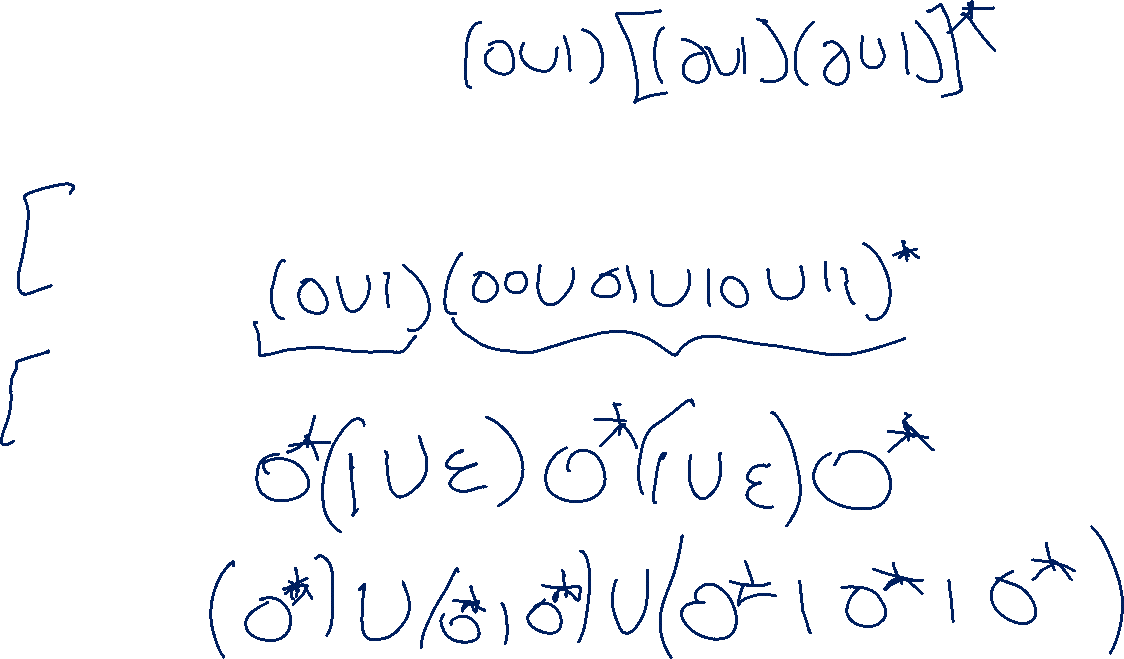 (0∪1)[(0∪1)(0∪1)]*
[
(0∪1)(00∪01∪10∪11)*
[
0*(1∪ε)0*(1∪ε)0*
(0*)∪(0*10*)∪(0*10*10*)